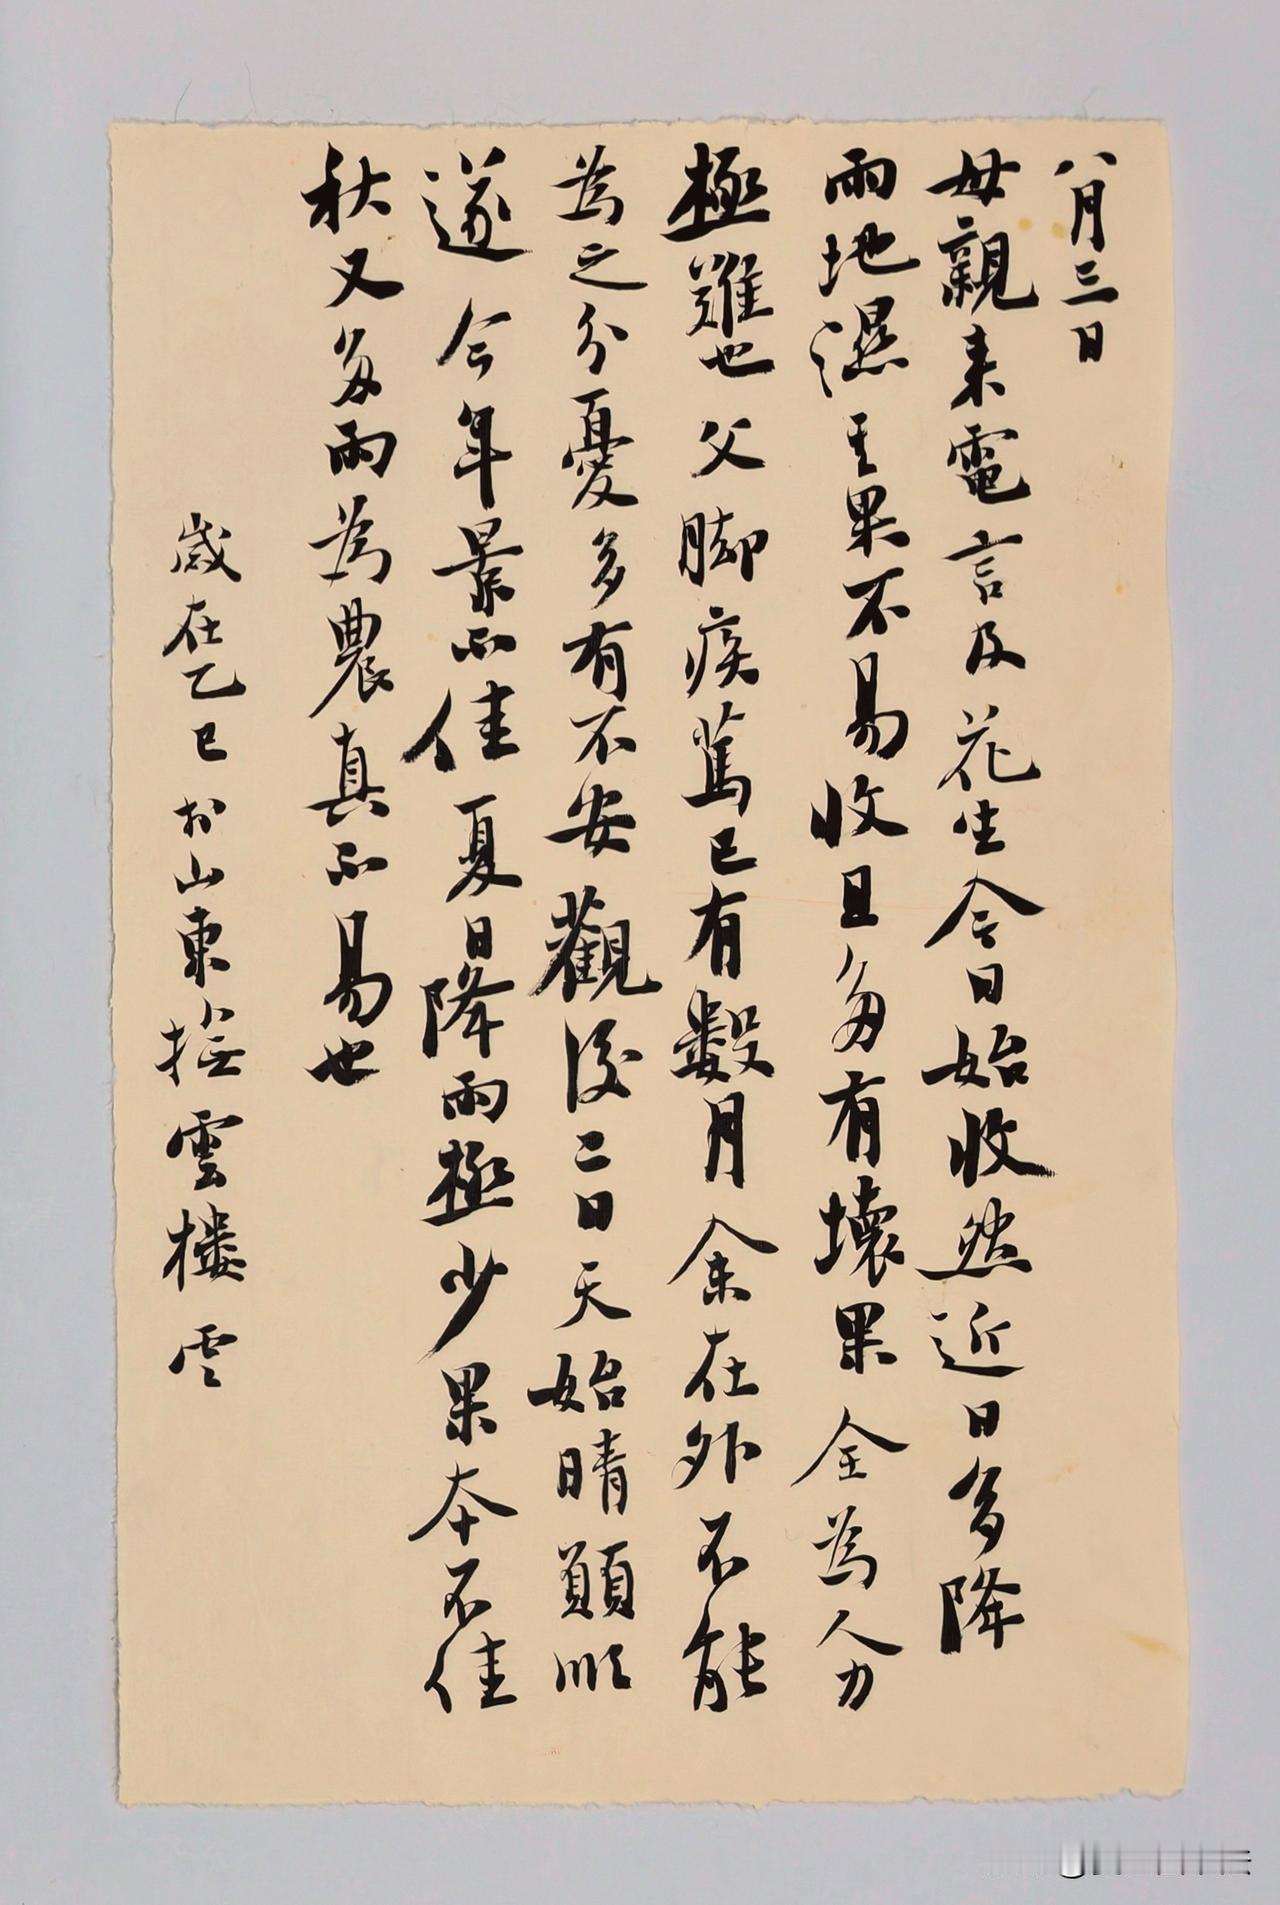 八月三日
母親来電言及花生今日始收然近日多降
雨地濕其果不易收且多有壞果全為人力
極難也父脚疾篤已有數月余在外不能
為之分憂多有不安觀後二日天始晴願順
遂今年景不佳夏日降雨極少果本不佳
秋又多雨為農真不易也
歲在乙巳於山東撫雲樓雲